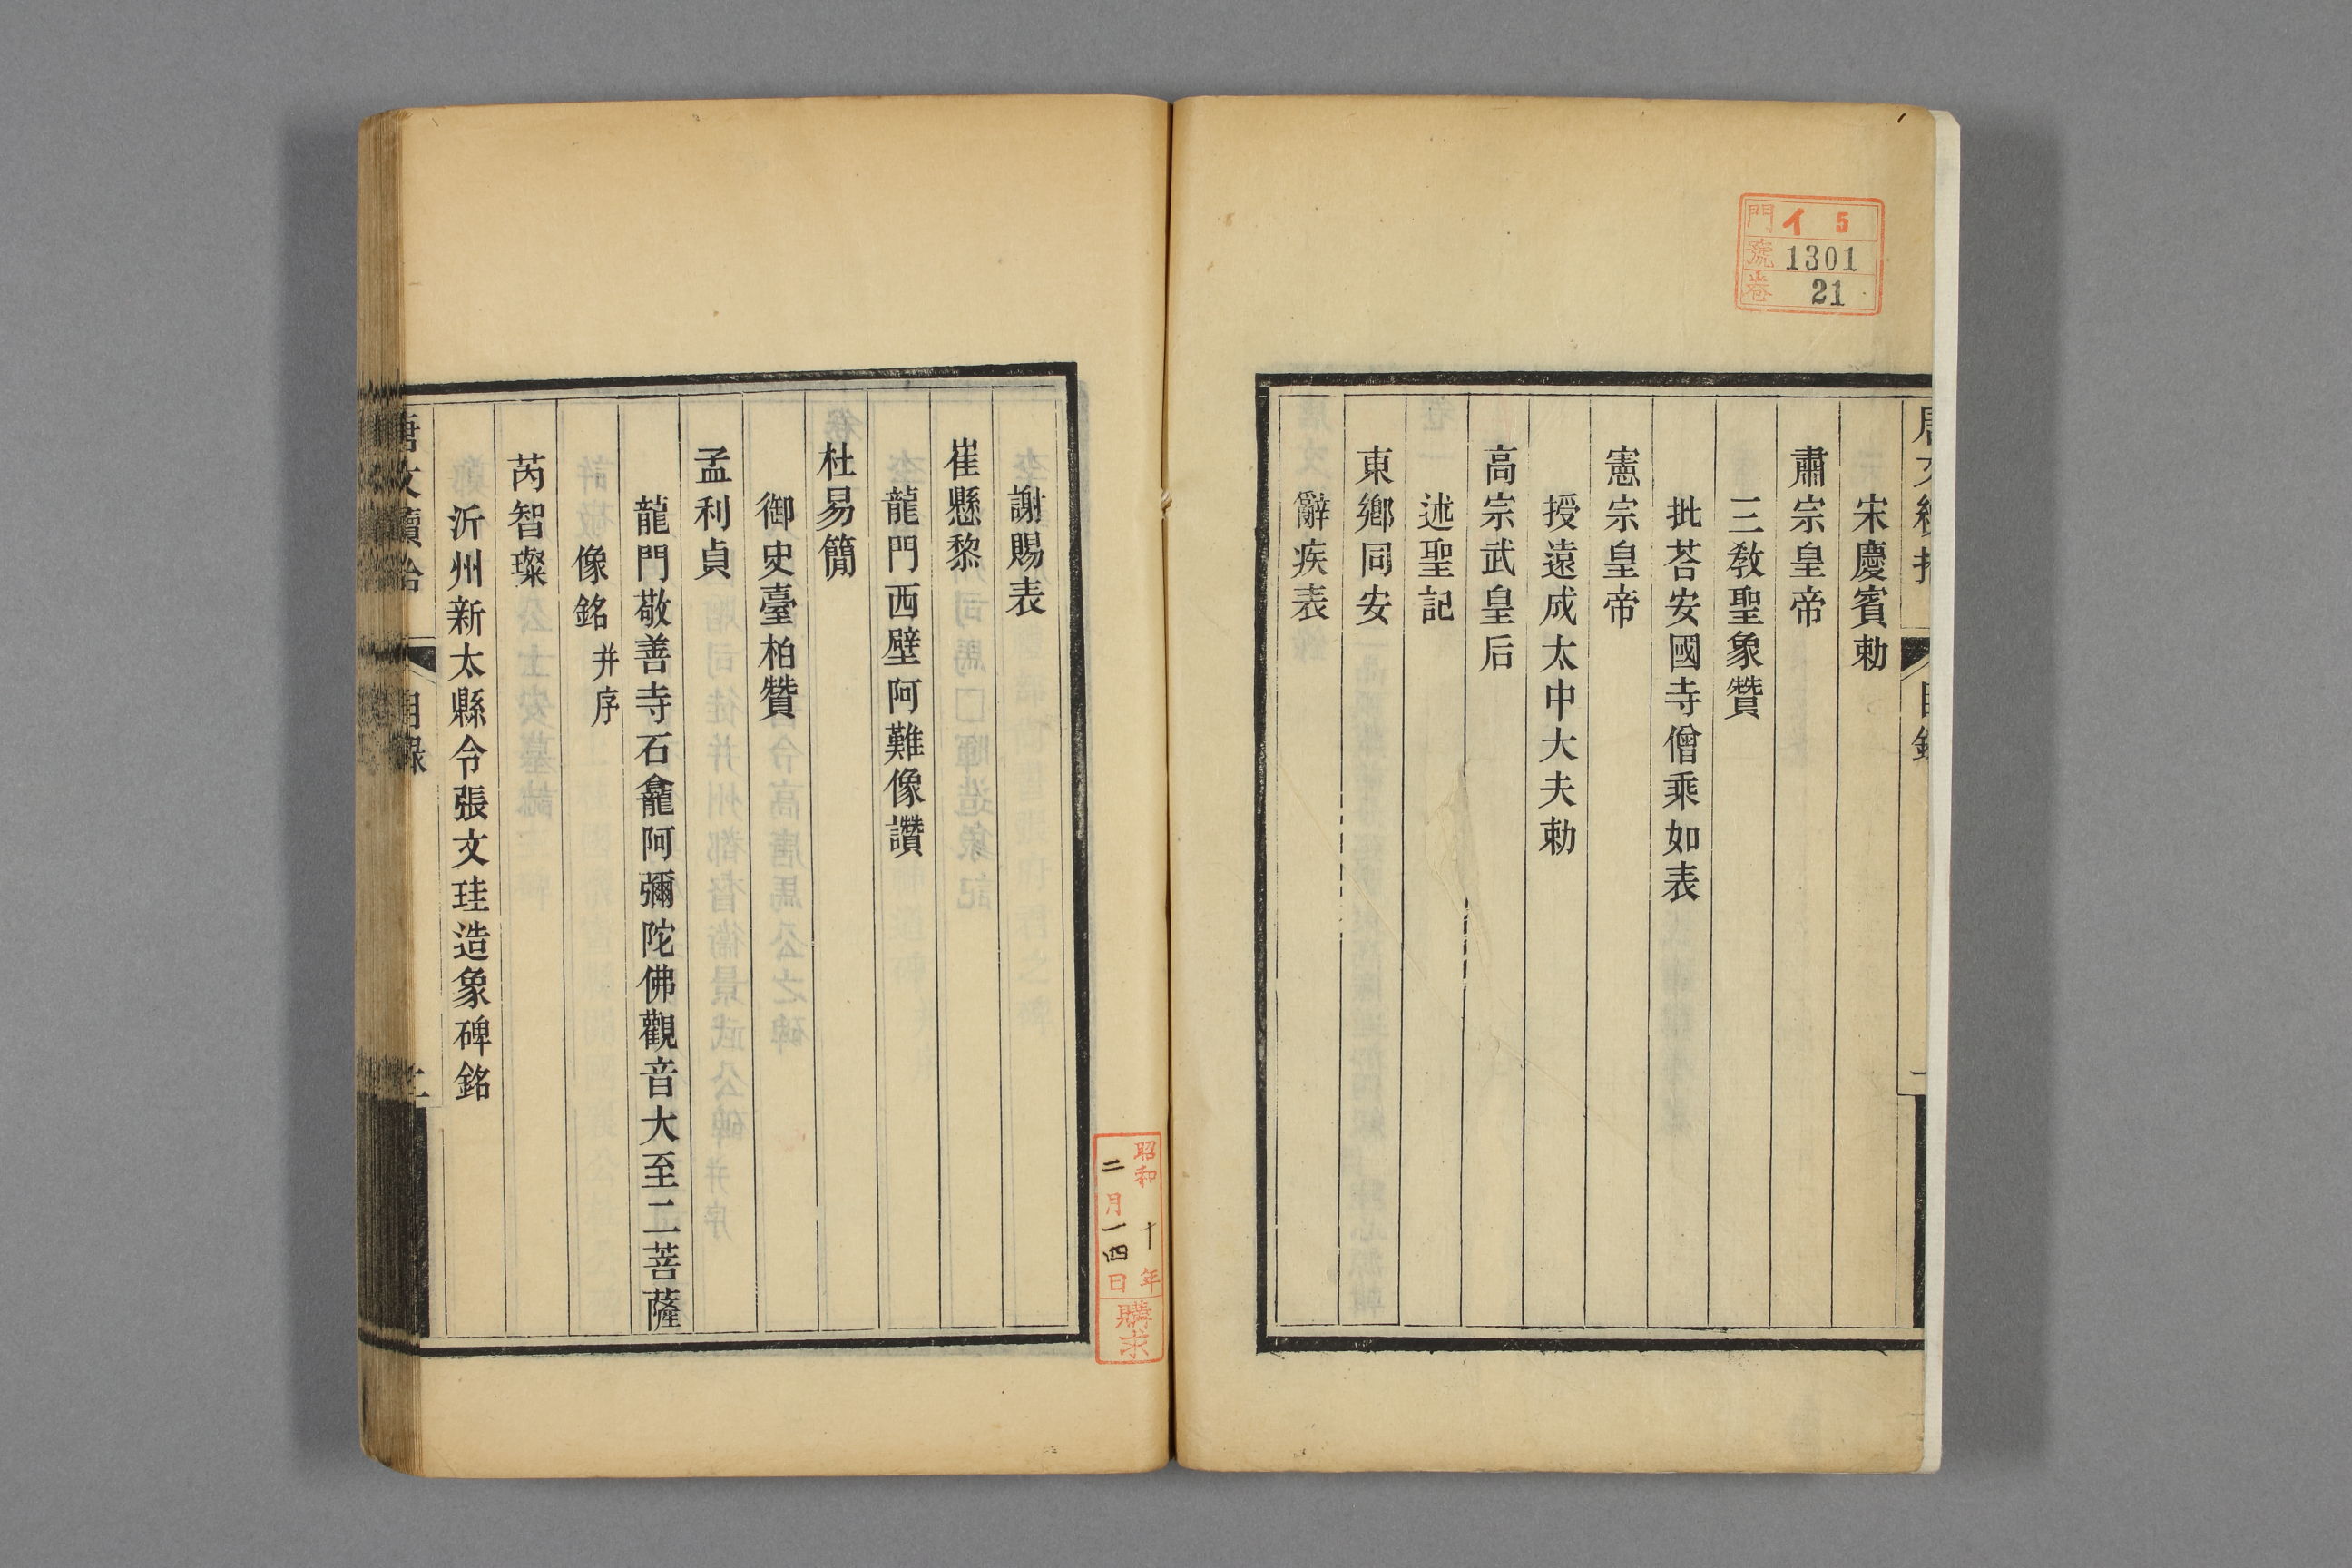 門 イ 5
號 1301
卷 21
宋慶賓勅
肅宗皇帝
三敎聖象贊
批荅安國寺僧乘如表
憲宗皇帝
授遠成太中大夫勅
高宗武皇后
述聖記
東鄉同安
辭疾表
謝賜表
崔懸黎
龍門西壁阿難像讚
杜易簡
御史臺柏贊
孟利貞
龍門敬善寺石龕阿彌陀佛觀音大至二菩薩
像銘并序
芮智璨
沂州新太縣令張文珪造象碑銘
唐文續拾
目錄
二
昭和十年
二月一四日
購求